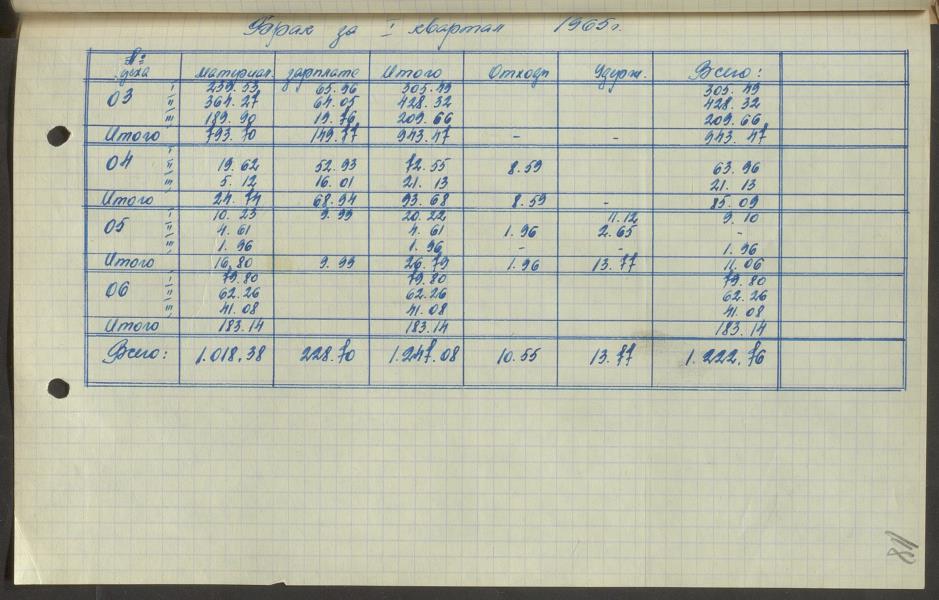 Брак за I квартал 1965г.
№ цеха материал. зарплата Итого Отходы Удерж. Всего:
03 I 239.53 65.96 305.49 305.49
II 364.27 64.05 428.32 428.32
III 189.90 19.76 209.66 209.66
Итого 793.70 149.77 943.47 - - 943.47
04 I
II 19.62 52.93 72.55 8.59 63.96
III 5.12 16.01 21.13 21.13
Итого 24.74 68.94 93.68 8.59 - 85.09
05 I 10.23 9.99 20.22 11.12 9.10
II 4.61 4.61 1.96 2.65 -
III 1.96 1.96 - - 1.96
Итого 16.80 9.99 26.79 1.96 13.77 11.06
06 I 79.80 79.80 79.80
II 62.26 62.26 62.26
III 41.08 41.08 41.08
Итого 183.14 183.14 183.14
Всего: 1.018.38 228.70 1.247.08 10.55 13.77 1.222.76